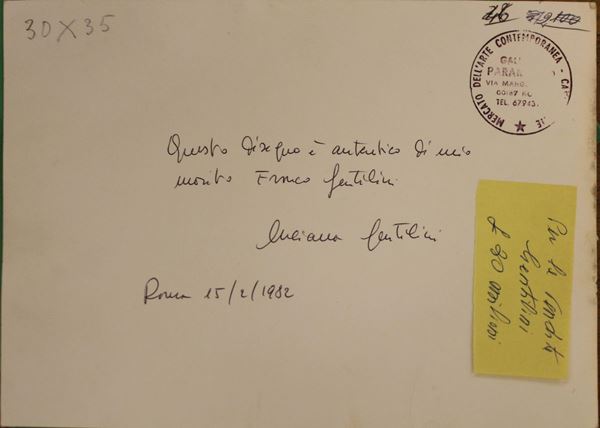 30 X 35
MERCATO DELL'ARTE CONTEMPORANEA
VIA MARG
00187 RO
TEL. 67943
Questo disegno è autentico di mio
marito Franco Gentilini
Luciana Gentilini
Roma 15/2/1982
Gentilini